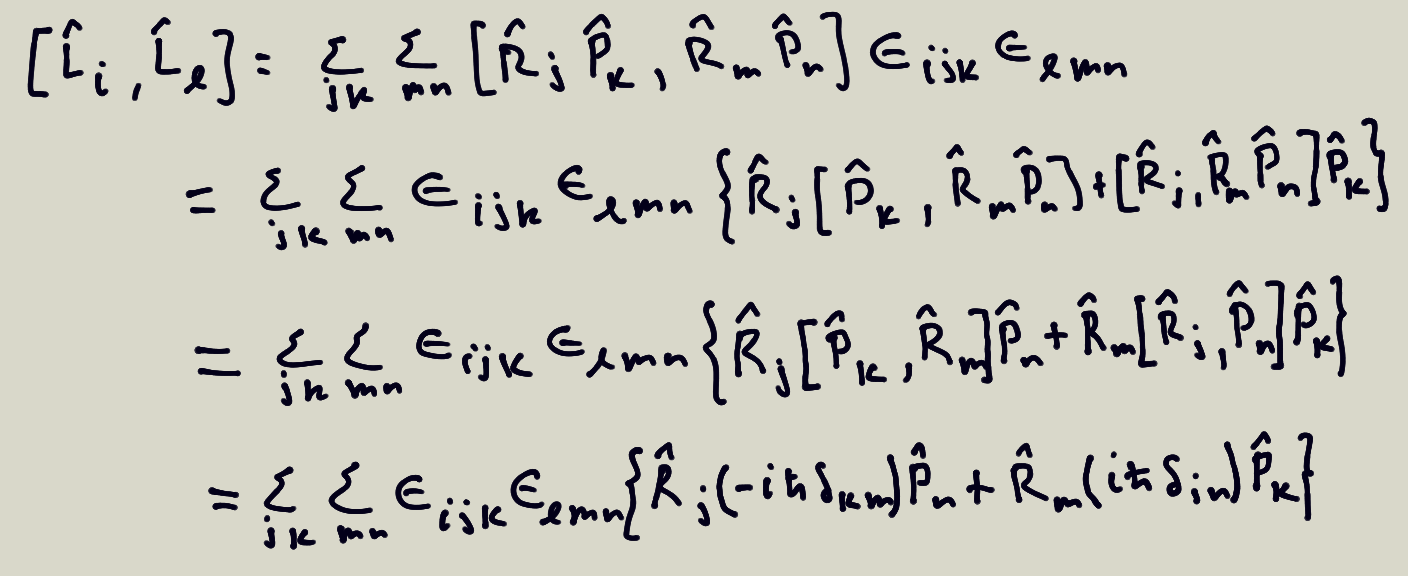 [L̂_i , L̂_ℓ] = Σ_{jk} Σ_{mn} [R̂_j P̂_k , R̂_m P̂_n] ∈_{ijk} ∈_{ℓmn}
= Σ_{jk} Σ_{mn} ∈_{ijk} ∈_{ℓmn} {R̂_j [P̂_k , R̂_m P̂_n] + [R̂_j , R̂_m P̂_n] P̂_k}
= Σ_{jk} Σ_{mn} ∈_{ijk} ∈_{ℓmn} {R̂_j [P̂_k , R̂_m] P̂_n + R̂_m [R̂_j , P̂_n] P̂_k}
= Σ_{jk} Σ_{mn} ∈_{ijk} ∈_{ℓmn} {R̂_j (-iℏ δ_{km}) P̂_n + R̂_m (iℏ δ_{jn}) P̂_k}